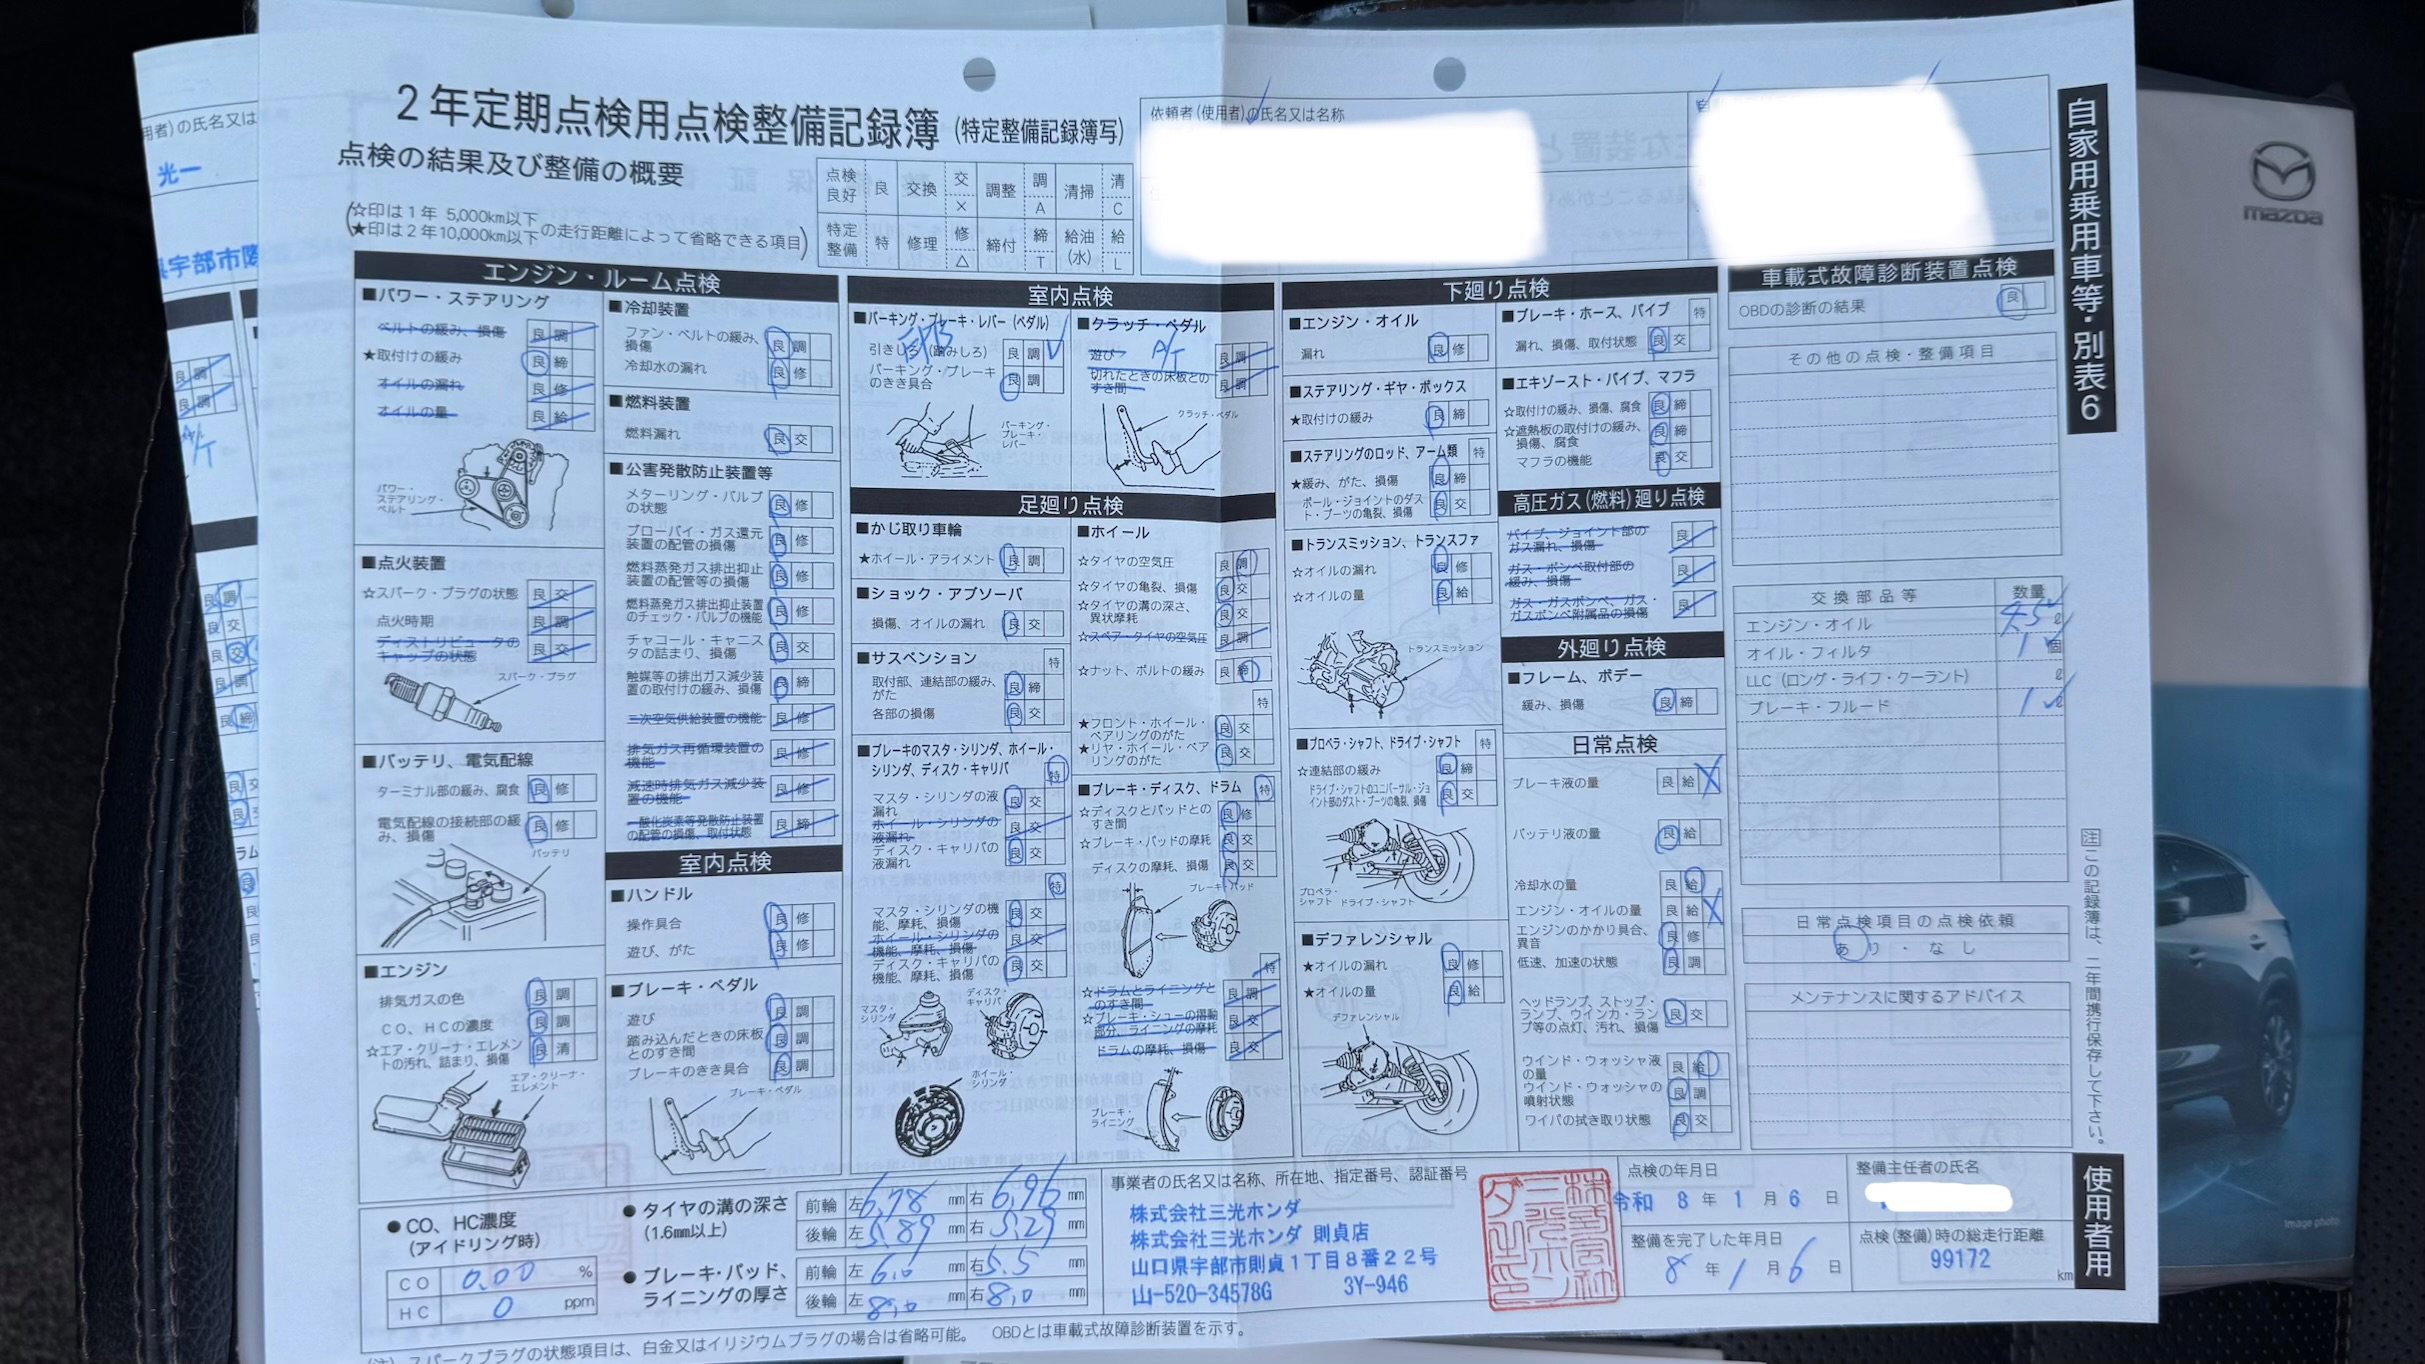 2年定期点検用点検整備記録簿 (特定整備記録簿写)
点検の結果及び整備の概要
☆印は1年 5,000km以下
★印は2年10,000km以下
の走行距離によって省略できる項目
点検良好 良 交換 交 × 調整 調 A 清掃 清 C
特定整備 特 修理 修 △ 締付 締 T 給油(水) 給 L
依頼者(使用者)の氏名又は名称
自家用乗用車等・別表6
用者)の氏名又は
光一
県宇部市際
mazda
エンジン・ルーム点検
■パワー・ステアリング
ベルトの緩み、損傷 良 調
★取付けの緩み 良 締
オイルの漏れ 良 修
オイルの量 良 給
パワー・ステアリング・ベルト
■点火装置
☆スパーク・プラグの状態 良 交
点火時期 良 調
ディストリビュータのキャップの状態 良 交
スパーク・プラグ
■バッテリ、電気配線
ターミナル部の緩み、腐食 良 修
電気配線の接続部の緩み、損傷 良 修
バッテリ
■エンジン
排気ガスの色 良 調
CO、HCの濃度 良 調
☆エア・クリーナ・エレメントの汚れ、詰まり、損傷 良 清
エア・クリーナ・エレメント
■冷却装置
ファン・ベルトの緩み、損傷 良 調
冷却水の漏れ 良 修
■燃料装置
燃料漏れ 良 交
■公害発散防止装置等
メターリング・バルブの状態 良 修
ブローバイ・ガス還元装置の配管の損傷 良 修
燃料蒸発ガス排出抑止装置の配管等の損傷 良 修
燃料蒸発ガス排出抑止装置のチェック・バルブの機能 良 修
チャコール・キャニスタの詰まり、損傷 良 交
触媒等の排出ガス減少装置の取付けの緩み、損傷 良 締
二次空気供給装置の機能 良 修
排気ガス再循環装置の機能 良 修
減速時排気ガス減少装置の機能 良 修
一酸化炭素等発散防止装置の配管の損傷、取付状態 良 締
室内点検
■ハンドル
操作具合 良 修
遊び、がた 良 修
■ブレーキ・ペダル
遊び 良 調
踏み込んだときの床板とのすき間 良 調
ブレーキのきき具合 良 調
ブレーキ・ペダル
室内点検
■パーキング・ブレーキ・レバー (ペダル)
EPB
引きしろ (踏みしろ) 良 調
パーキング・ブレーキのきき具合 良 調
パーキング・ブレーキ・レバー
■クラッチ・ペダル
A/T
遊び 良 調
切れたときの床板とのすき間 良 調
クラッチ・ペダル
足廻り点検
■かじ取り車輪
★ホイール・アライメント 良 調
■ショック・アブソーバ
損傷、オイルの漏れ 良 交
■サスペンション 特
取付部、連結部の緩み、がた 良 締
各部の損傷 良 交
■ブレーキのマスタ・シリンダ、ホイール・シリンダ、ディスク・キャリパ 特
マスタ・シリンダの液漏れ 良 交
ホイール・シリンダの液漏れ 良 交
ディスク・キャリパの液漏れ 良 交
特
マスタ・シリンダの機能、摩耗、損傷 良 交
ホイール・シリンダの機能、摩耗、損傷 良 交
ディスク・キャリパの機能、摩耗、損傷 良 交
マスタ・シリンダ
ディスク・キャリパ
ホイール・シリンダ
■ホイール
☆タイヤの空気圧 良 調
☆タイヤの亀裂、損傷 良 交
☆タイヤの溝の深さ、異状摩耗 良 交
☆スペア・タイヤの空気圧 良 調
☆ナット、ボルトの緩み 良 締
特
★フロント・ホイール・ベアリングのがた 良 交
★リヤ・ホイール・ベアリングのがた 良 交
■ブレーキ・ディスク、ドラム 特
☆ディスクとパッドとのすき間 良 修
☆ブレーキ・パッドの摩耗 良 交
ディスクの摩耗、損傷 良 交
ブレーキ・パッド
特
☆ドラムとライニングとのすき間 良 調
☆ブレーキ・シューの摺動部分、ライニングの摩耗 良 交
ドラムの摩耗、損傷 良 交
ブレーキ・ライニング
下廻り点検
■エンジン・オイル
漏れ 良 修
■ステアリング・ギヤ・ボックス
★取付けの緩み 良 締
■ステアリングのロッド、アーム類 特
★緩み、がた、損傷 良 締
ボール・ジョイントのダスト・ブーツの亀裂、損傷 良 交
■トランスミッション、トランスファ
☆オイルの漏れ 良 修
☆オイルの量 良 給
トランスミッション
■プロペラ・シャフト、ドライブ・シャフト 特
☆連結部の緩み 良 締
ドライブ・シャフトのユニバーサル・ジョイント部のダスト・ブーツの亀裂、損傷 良 交
プロペラ・シャフト ドライブ・シャフト
■デファレンシャル
★オイルの漏れ 良 修
★オイルの量 良 給
デファレンシャル
■ブレーキ・ホース、パイプ 特
漏れ、損傷、取付状態 良 交
■エキゾースト・パイプ、マフラ
☆取付けの緩み、損傷、腐食 良 締
☆遮熱板の取付けの緩み、損傷、腐食 良 締
マフラの機能 良 交
高圧ガス(燃料)廻り点検
パイプ、ジョイント部のガス漏れ、損傷 良
ガス・ボンベ取付部の緩み、損傷 良
ガス・ガスボンベ、ガス・ガスボンベ附属品の損傷 良
外廻り点検
■フレーム、ボデー
緩み、損傷 良 締
日常点検
ブレーキ液の量 良 給 X
バッテリ液の量 良 給
冷却水の量 良 給
エンジン・オイルの量 良 給 X
エンジンのかかり具合、異音 良 修
低速、加速の状態 良 調
ヘッドランプ、ストップ・ランプ、ウインカ・ランプ等の点灯、汚れ、損傷 良 交
ウインド・ウォッシャ液の量 良 給
ウインド・ウォッシャの噴射状態 良 調
ワイパの拭き取り状態 良 交
車載式故障診断装置点検
OBDの診断の結果 良
その他の点検・整備項目
交換部品等 数量
エンジン・オイル 4.5 ℓ
オイル・フィルタ 1 個
LLC (ロング・ライフ・クーラント) ℓ
ブレーキ・フルード 1 ℓ
日常点検項目の点検依頼
あり・なし
メンテナンスに関するアドバイス
注この記録簿は、二年間携行保存して下さい。
使用者用
● CO、HC濃度
(アイドリング時)
CO 0.00 %
HC 0 ppm
● タイヤの溝の深さ
(1.6mm以上)
前輪 左 6.78 mm 右 6.96 mm
後輪 左 5.89 mm 右 5.29 mm
● ブレーキ・パッド、ライニングの厚さ
前輪 左 6.0 mm 右 5.5 mm
後輪 左 8.0 mm 右 8.0 mm
事業者の氏名又は名称、所在地、指定番号、認証番号
株式会社三光ホンダ
株式会社三光ホンダ 則貞店
山口県宇部市則貞1丁目8番22号
山-520-34578G 3Y-946
点検の年月日
令和 8 年 1 月 6 日
整備を完了した年月日
8 年 1 月 6 日
整備主任者の氏名
点検(整備)時の総走行距離
99172 km
Image photo
(注) スパークプラグの状態項目は、白金又はイリジウムプラグの場合は省略可能。 OBDとは車載式故障診断装置を示す。